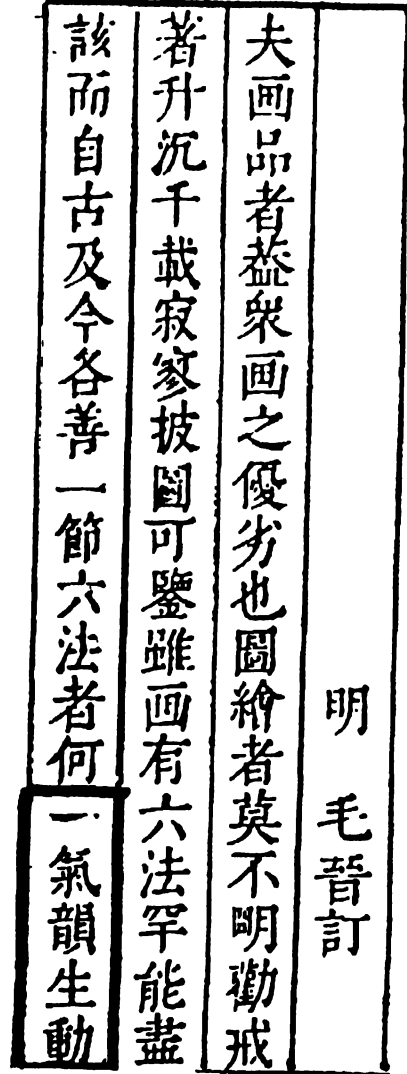 明　毛晉訂
夫画品者葢衆画之優劣也圖繪者莫不明勸戒
著升沉千載寂寥披圖可鑒雖画有六法罕能盡
該而自古及今各善一節六法者何一氣韻生動